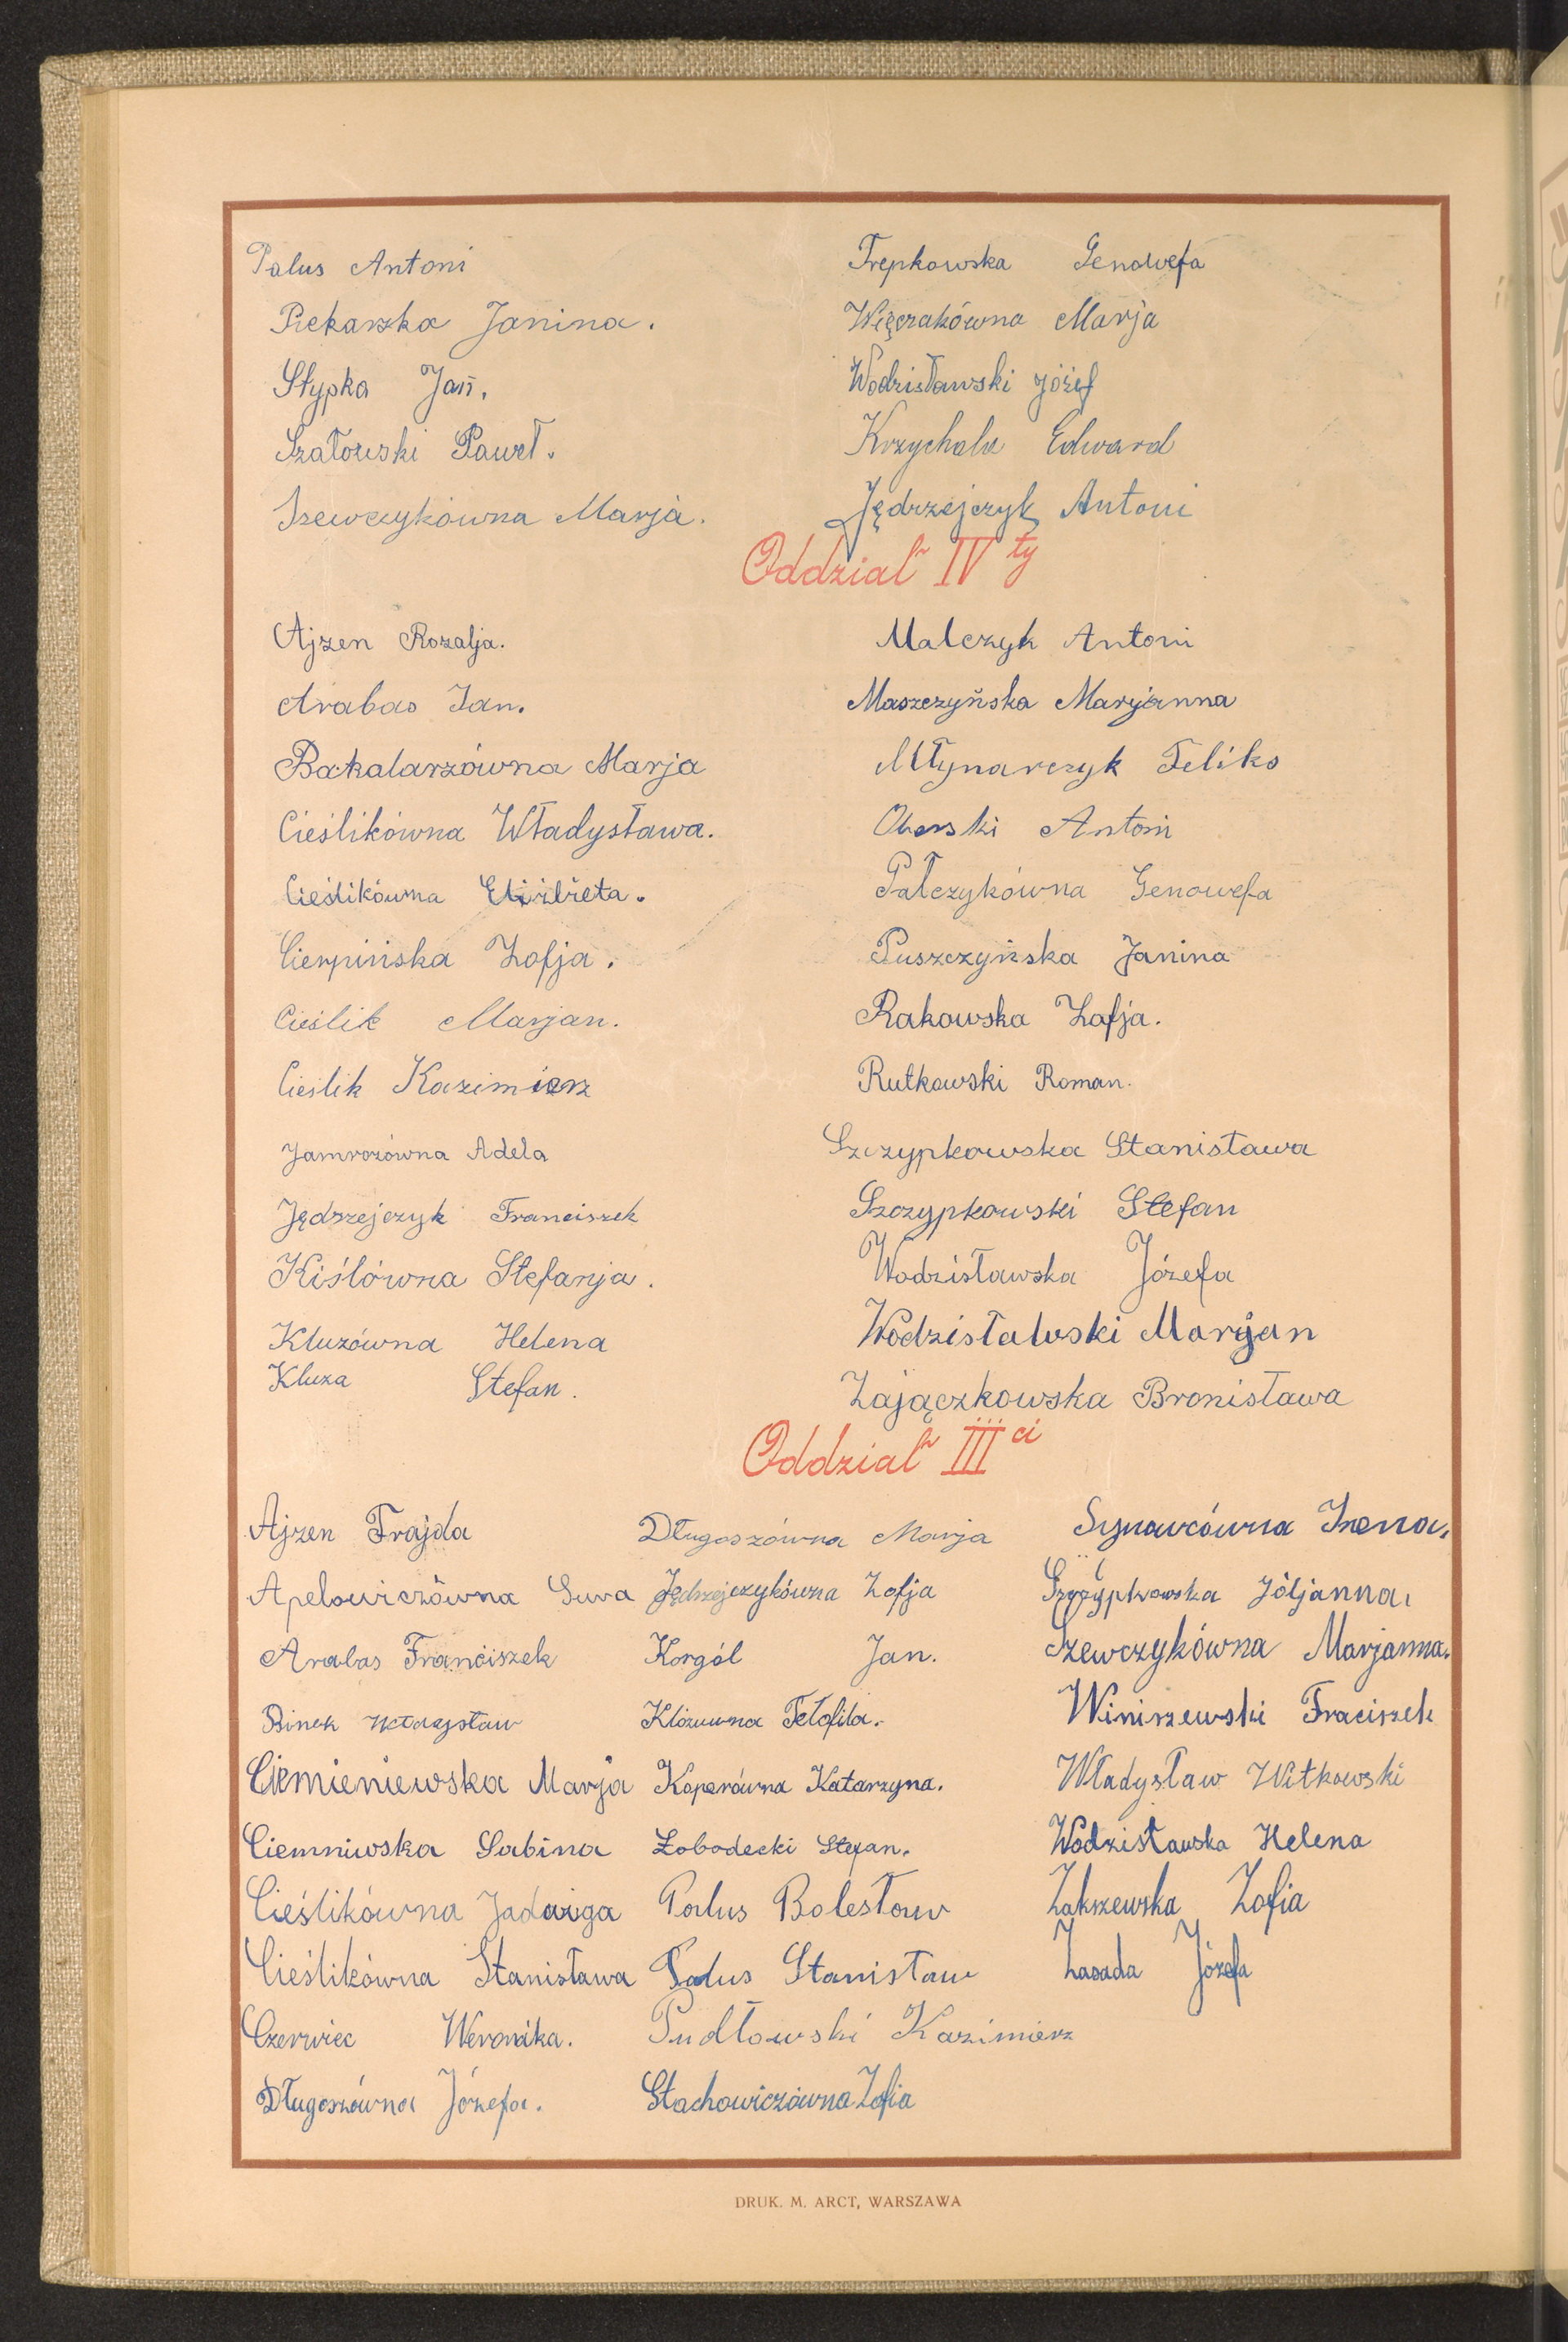 Palus Antoni
Piekarska Janina.
Stypka Jan.
Szatowski Paweł.
Szewczykówna Marja.
Trepkowska Genowefa
Więczakówna Marja
Wodzisławski Józef
Krzychala Edward
Jędrzejczyk Antoni
Oddział IV ty
Ajzen Rozalja.
Arabas Jan.
Bakalarzówna Marja
Cieślikówna Władysława.
Cieślikówna Elżbieta.
Cierpińska Zofja.
Cieślik Marjan.
Cieślik Kazimierz
Jamrozówna Adela
Jędrzejczyk Franciszek
Kiślówna Stefanja.
Kluzówna Helena
Kluza Stefan.
Malczyk Antoni
Maszczyńska Maryanna
Młynarczyk Feliks
Oberski Antoni
Palczykówna Genowefa
Puszczyńska Janina
Rakowska Zofja.
Rutkowski Roman.
Szczypkowska Stanisława
Szczypkowski Stefan
Wodzisławska Józefa
Wodzisławski Marjan
Zajączkowska Bronisława
Oddział III ci
Ajzen Frajda
Apelowiczówna Sura
Arabas Franciszek
Binek Władysław
Ciemieniewska Marja
Ciemniwska Sabina
Cieślikówna Jadwiga
Cieślikówna Stanisława
Czerwiec Weronika.
Długoszówna Józefa.
Długoszówna Marja
Jędrzejczykówna Zofja
Korgól Jan.
Klózuwna Tetofila.
Koperówna Katarzyna.
Łobodecki Stefan.
Palus Bolesław
Palus Stanisław
Pudłowski Kazimierz
Stachowiczówna Zofia
Synowcówna Irena.
Szczypkowska Jóljanna.
Szewczykówna Marjanna.
Winiszewski Fraciszek
Władysław Witkowski
Wodzisławska Helena
Zakszewska Zofia
Zasada Józefa
DRUK. M. ARCT, WARSZAWA